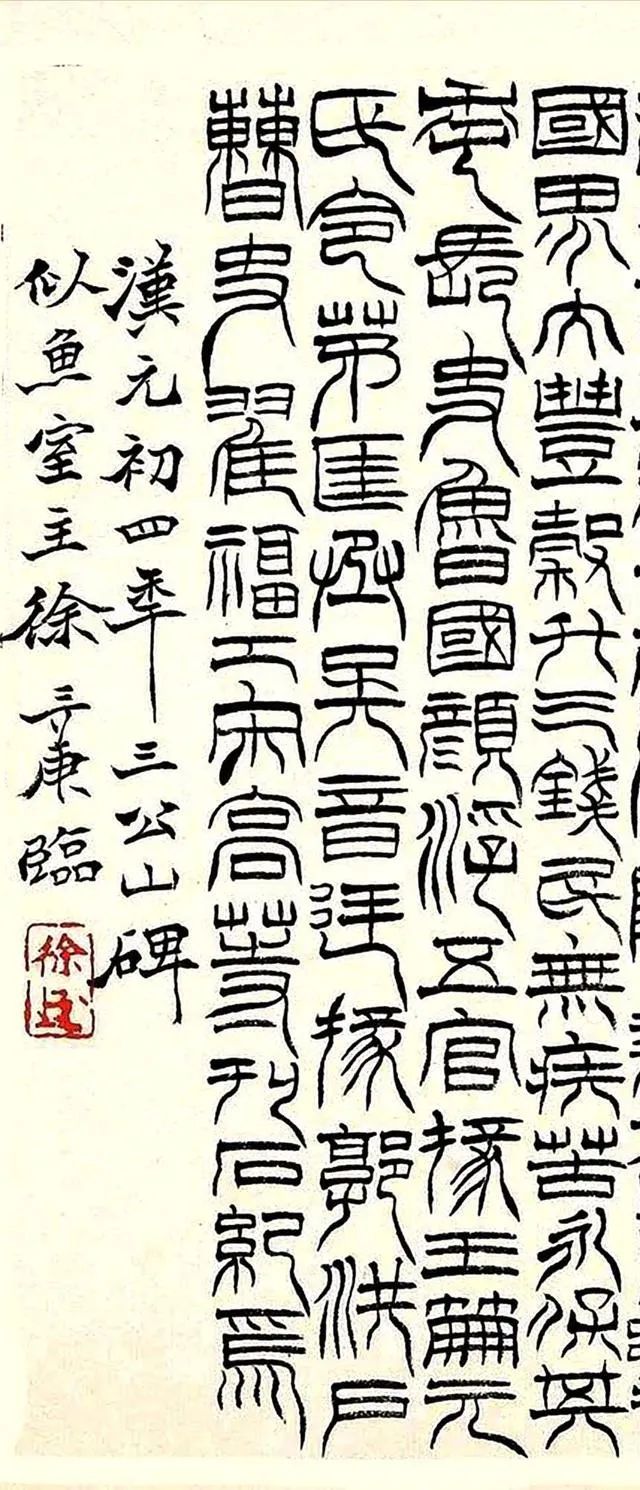 國界大豐穀斗三錢民無疾苦永保其
年長史魯國顏浮五官掾王笧元
氏令茅匡丞吳音廷掾郭洪戶
曹史翟福工宋高等刊石紀焉
漢元初四年三公山碑
似魚室主徐三庚臨